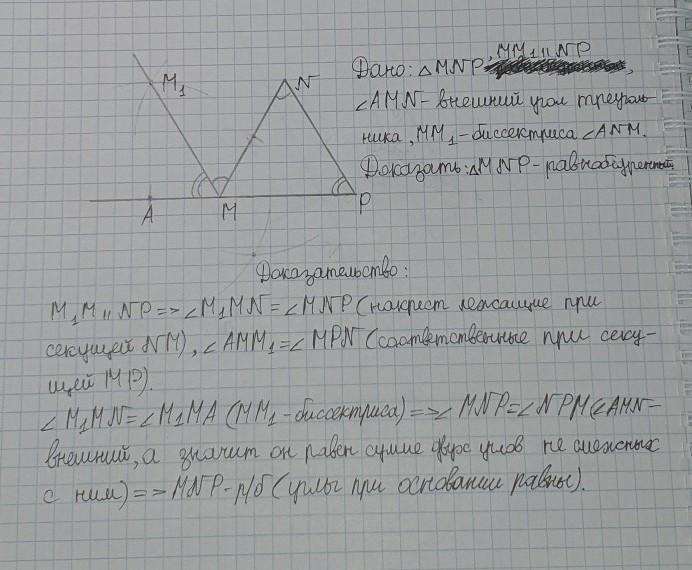 M₁
N
A
M
P
Дано: △MNP, MM₁ || NP
∠AMN – внешний угол треуголь-
ника, MM₁ – биссектриса ∠ANM.
Доказать: △MNP – равнобедренный
Доказательство:
M₁M || NP => ∠M₁MN = ∠MNP (накрест лежащие при
секущей NM), ∠AMM₁ = ∠MPN (соответственные при секу-
щей MP).
∠M₁MN = ∠M₁MA (MM₁ – биссектриса) => ∠MNP = ∠NPM (∠AMN –
внешний, а значит он равен сумме двух углов не смежных
с ним) => MNP – р/б (углы при основании равны).